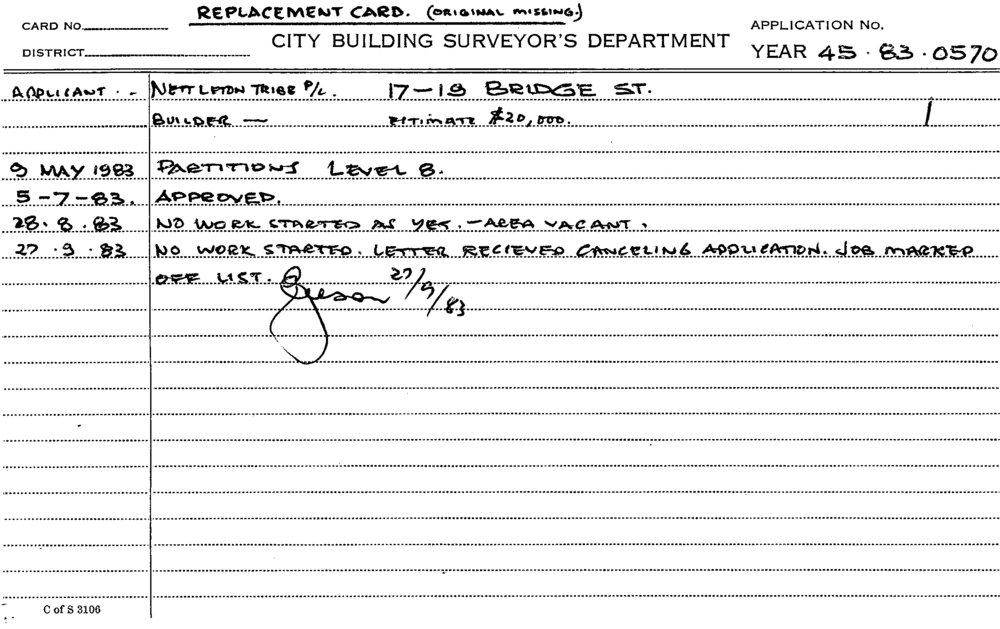 REPLACEMENT CARD. (ORIGINAL MISSING.)
CARD No.
APPLICATION No.
DISTRICT
CITY BUILDING SURVEYOR'S DEPARTMENT
YEAR 45 · 83 · 0570
APPLICANT - NETTLETON TRIBE P/L. 17-19 BRIDGE ST.
BUILDER — ESTIMATE $20,000. 1
9 MAY 1983 PARTITIONS LEVEL 8.
5-7-83. APPROVED.
28.8.83 NO WORK STARTED AS YET. - AREA VACANT.
27.9.83 NO WORK STARTED. LETTER RECIEVED CANCELING APPLICATION. JOB MARKED
OFF LIST. 27/9/83
C of S 3106